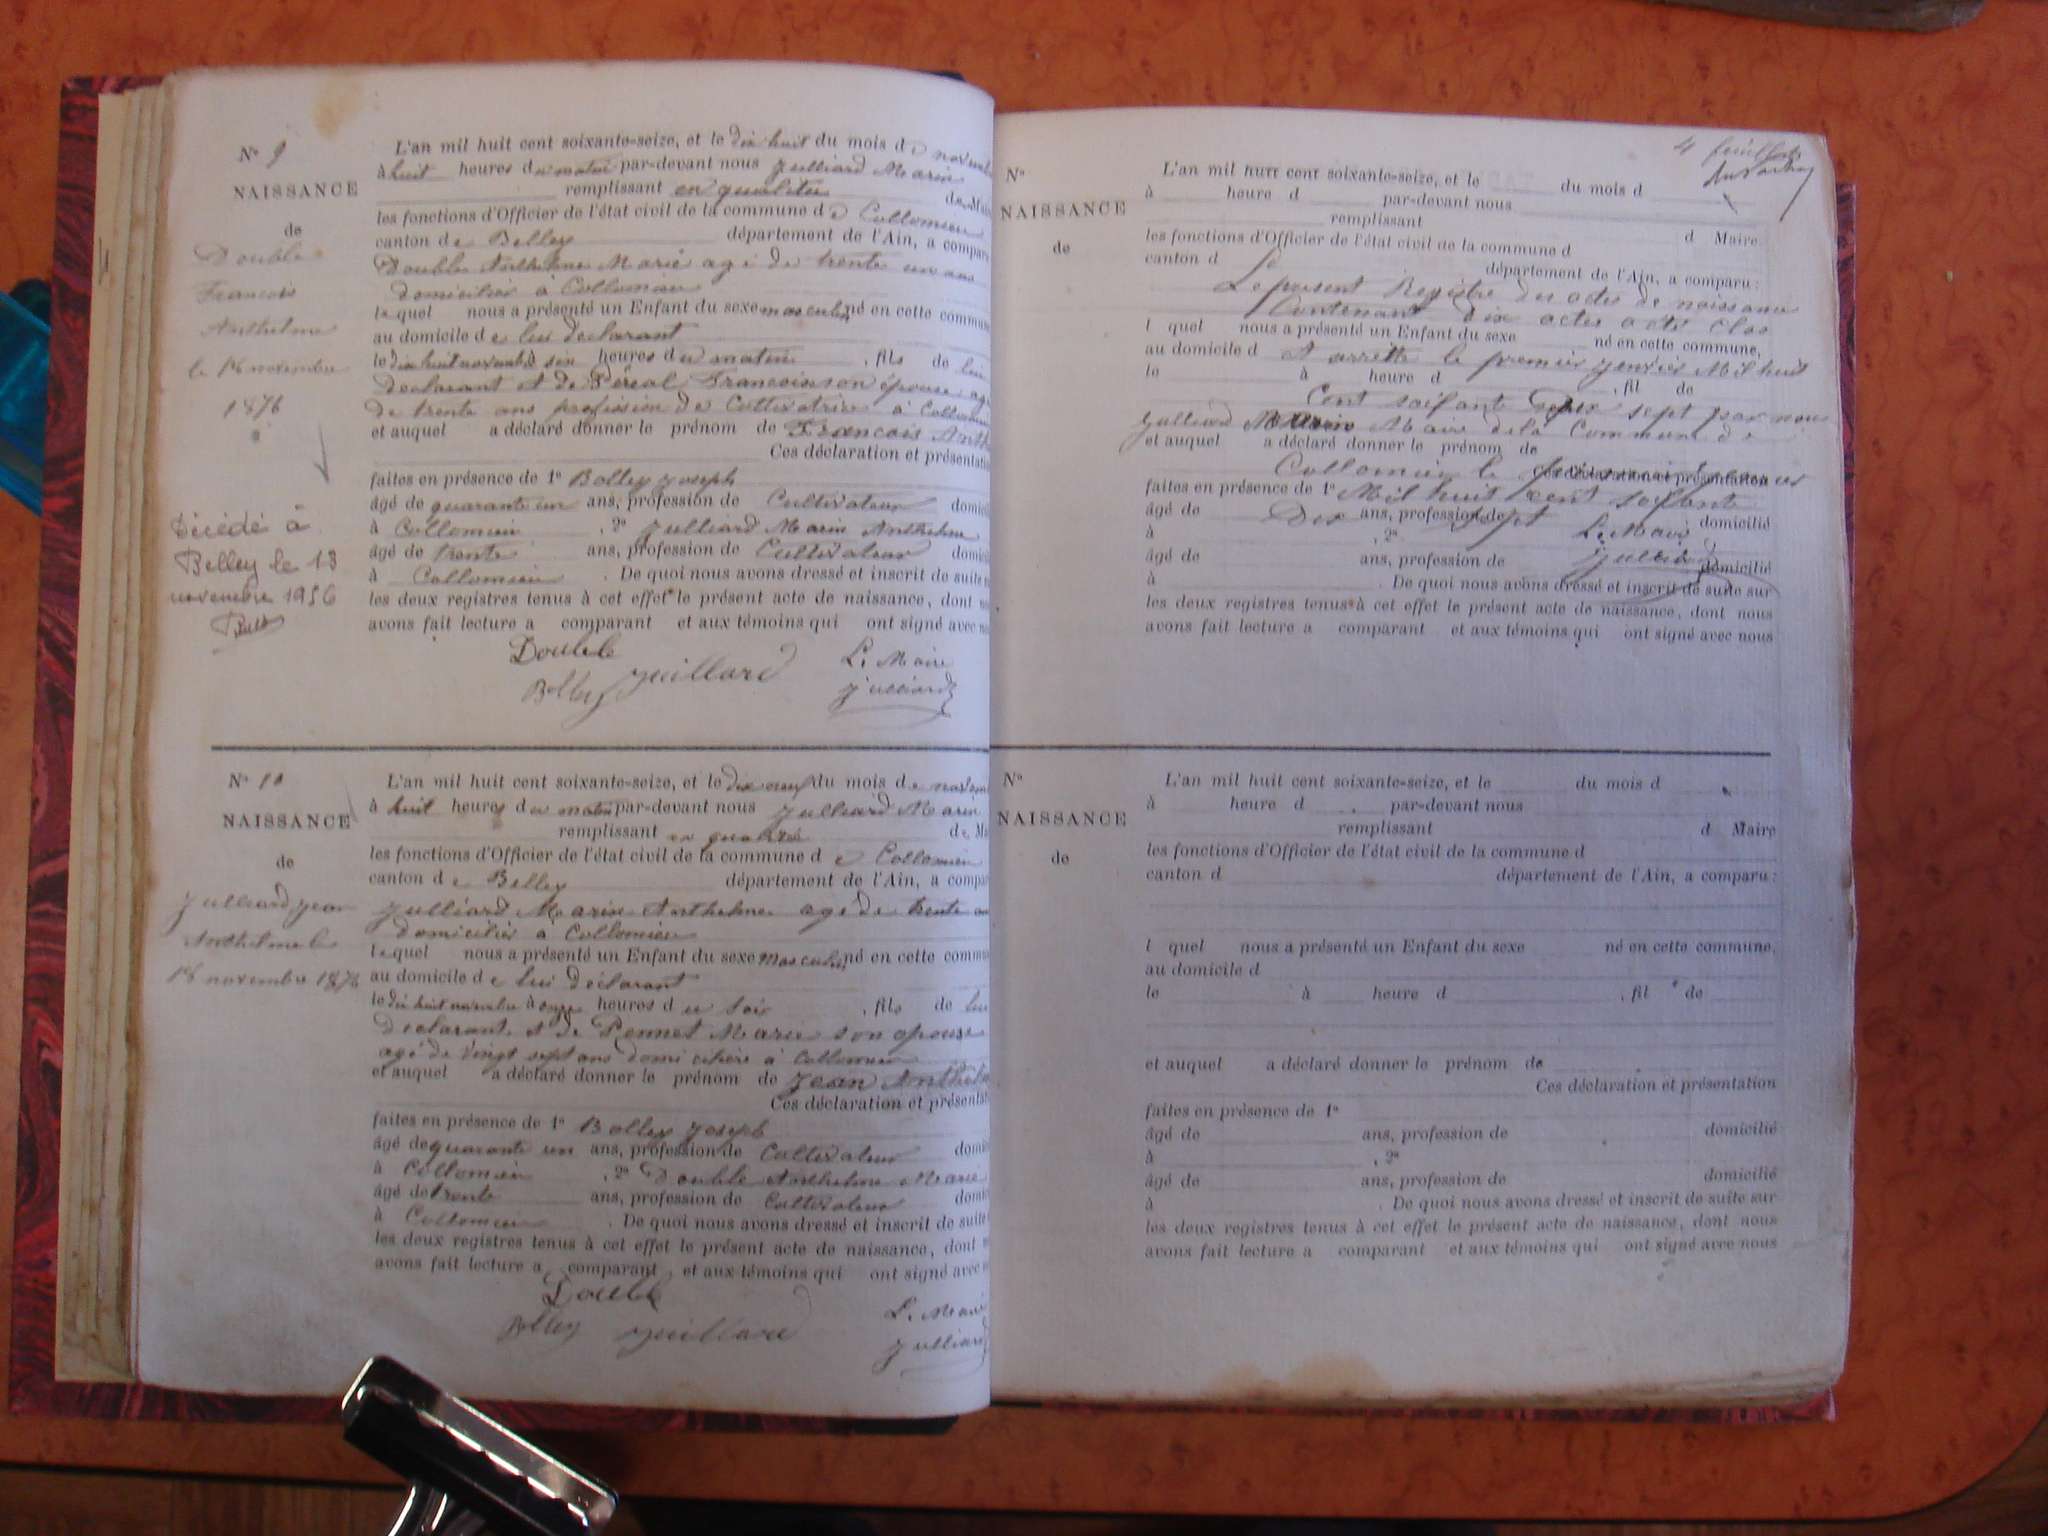 N° 9
NAISSANCE
de
Double
Francois
Anthelme
le 18 novembre
1876
Décédé à
Belley le 13
novembre 1956
L'an mil huit cent soixante-seize, et le dix huit du mois de
à huit heures du matin par-devant nous Julliard Marin
remplissant en qualitée de
les fonctions d'Officier de l'état civil de la commune de Collomieu
canton de Belley département de l'Ain, a compa
Double Anthelme Marie agé de trente un ans
domicilier à Collomieu
lequel nous a présenté un Enfant du sexe masculin né en cette commune
au domicile de lui declarant
le dix huit novembre à six heures du matin, fils de lui
declarant et de Péreal Francoise son épouse agé
de trente ans profession de Cultivatrice à Collomieu
et auquel a déclaré donner le prénom de Francois Anth
Ces déclaration et présentatio
faites en présence de 1° Bolley Joseph
âgé de quarante un ans, profession de Cultivateur domici
à Collomieu, 2° Julliard Marin Anthelme
âgé de trente ans, profession de Cultivateur domici
à Collomieu. De quoi nous avons dressé et inscrit de suite
les deux registres tenus à cet effet le présent acte de naissance, dont
avons fait lecture a comparant et aux témoins qui ont signé avec
Double
Bolley Juillard Le Maire
Julliard
N° 10
NAISSANCE
de
Julliard Jean
Anthelme le
18 novembre 1876
L'an mil huit cent soixante-seize, et le dix neuf du mois de
à huit heures du matin par-devant nous Julliard Marin
remplissant en qualitée de
les fonctions d'Officier de l'état civil de la commune de Collomieu
canton de Belley département de l'Ain, a compar
Julliard Marin Anthelme agé de trente
domicilier à Collomieu
lequel nous a présenté un Enfant du sexe Masculin né en cette commu
au domicile de lui déclarant
le dix huit novembre à onze heures du soir, fils de lui
declarant et de Pennet Marie son epouse
agé de vingt sept ans domicilière à Collomieu
et auquel a déclaré donner le prénom de Jean Anthel
Ces déclaration et présentat
faites en présence de 1° Bolley Joseph
âgé de quarante un ans, profession de Cultivateur domi
à Collomieu, 2° Double Anthelme Marie
âgé de trente ans, profession de Cultivateur domi
à Collomieu. De quoi nous avons dressé et inscrit de suite
les deux registres tenus à cet effet le présent acte de naissance, dont
avons fait lecture a comparant et aux témoins qui ont signé avec
Double
Bolley Juillard Le Mair
Julliard
4 feuillets
N°
NAISSANCE
de
L'an mil huit cent soixante-seize, et le du mois d
à heure d par-devant nous
remplissant d Maire
les fonctions d'Officier de l'état civil de la commune d
canton d département de l'Ain, a comparu:
Le present Registre des actes de naissance
Contenant dix actes a été clos
l quel nous a présenté un Enfant du sexe né en cette commune,
au domicile d
et arrette le premier Jenvier Mil huit
le à heure d , fil de
Cent soisante Dix sept par nous
Julliard Marin Maire de la Commune de
et auquel a déclaré donner le prénom de
Collomieu le
Ces déclaration et présentation
faites en présence de 1°
Mil huit cent soisante
âgé de ans, profession de domicilié
Dix sept Le Maire
à , 2°
Julliard
âgé de ans, profession de domicilié
à . De quoi nous avons dressé et inscrit de suite sur
les deux registres tenus à cet effet le présent acte de naissance, dont nous
avons fait lecture a comparant et aux témoins qui ont signé avec nous
N°
NAISSANCE
de
L'an mil huit cent soixante-seize, et le du mois d
à heure d par-devant nous
remplissant d Maire
les fonctions d'Officier de l'état civil de la commune d
canton d département de l'Ain, a comparu:
l quel nous a présenté un Enfant du sexe né en cette commune,
au domicile d
le à heure d , fil de
et auquel a déclaré donner le prénom de
Ces déclaration et présentation
faites en présence de 1°
âgé de ans, profession de domicilié
à , 2°
âgé de ans, profession de domicilié
à . De quoi nous avons dressé et inscrit de suite sur
les deux registres tenus à cet effet le présent acte de naissance, dont nous
avons fait lecture a comparant et aux témoins qui ont signé avec nous